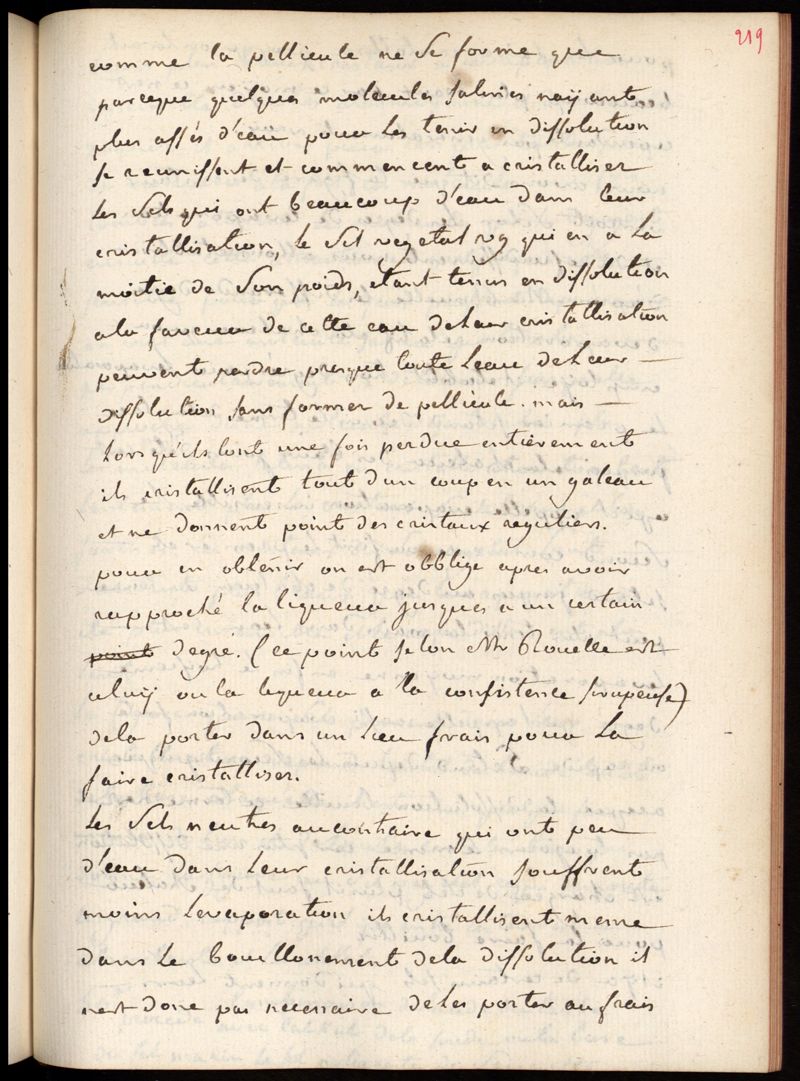 219
comme la pellicule ne se forme que
parceque quelques molecules salines nayant
plus assés d'eau pour les tenir en dissolution
se reunissent et commencent a cristalliser
les sels qui ont beaucoup d'eau dans leur
cristallisation, le sel vegetal vg qui en a la
moitie de son poids, etant tenus en dissolution
a la faveur de cette eau de leur cristallisation
peuvent perdre presque toute leau de leur —
dissolution sans former de pellicule. mais —
lors quils lont une fois perdue entièrement
ils cristallisent tout dun coup en un gateau
et ne donnent point des cristaux reguliers.
pour en obtenir on est obblige apres avoir
rapproché la liqueur jusques a un certain
point degré. (ce point selon Mr Rouelle est
celuy ou la liqueur a la consistence sirupeuse)
de la porter dans un lieu frais pour la
faire cristalliser.
les sels neutres aucontraire qui ont peu
d'eau dans leur cristallisation souffrent
moins levaporation ils cristallisent meme
dans le bouillonement de la dissolution il
nest donc pas necessaire de les porter au frais